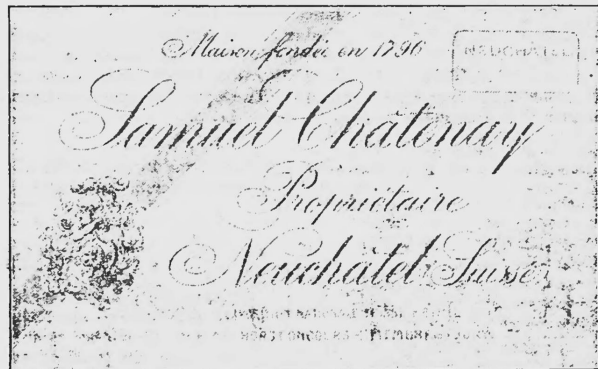 Maison fondée en 1796
NEUCHÂTEL
Samuel Châtenay
Propriétaire
Neuchâtel Suisse